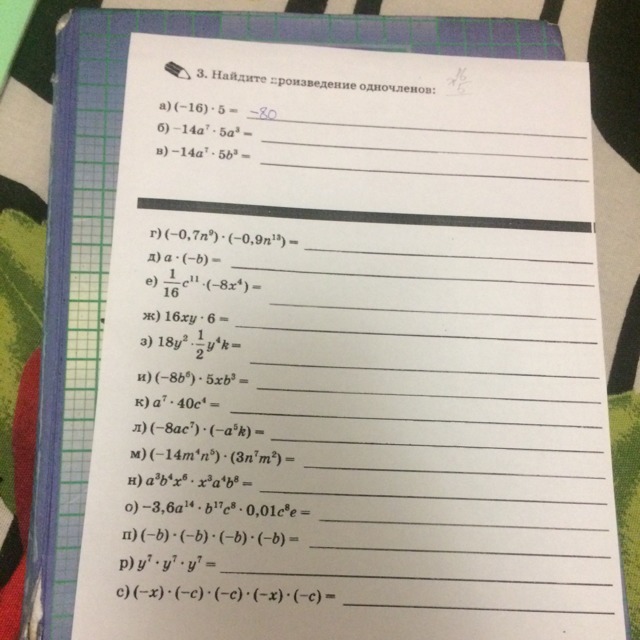 3. Найдите произведение одночленов:
а) (−16) · 5 = −80
б) −14a⁷ · 5a³ =
в) −14a⁷ · 5b³ =
г) (−0,7n⁹) · (−0,9n¹³) =
д) a · (−b) =
е) 1/16 c¹¹ · (−8x⁴) =
ж) 16xy · 6 =
з) 18y² · 1/2 y⁴k =
и) (−8b⁶) · 5xb³ =
к) a⁷ · 40c⁴ =
л) (−8ac⁷) · (−a⁵k) =
м) (−14m⁴n⁵) · (3n⁷m²) =
н) a³b⁴x⁶ · x³a⁴b⁸ =
о) −3,6a¹⁴ · b¹⁷c⁸ · 0,01c⁸e =
п) (−b) · (−b) · (−b) · (−b) =
р) y⁷ · y⁷ · y⁷ =
с) (−x) · (−c) · (−c) · (−x) · (−c) =